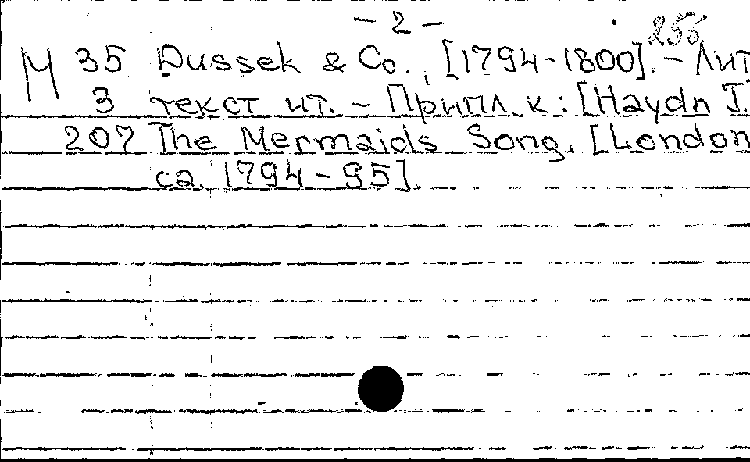 - 2 -
255
М 35 Dussek & Co., [1794-1800]. - Лит
3 текст ит. - Припл. к: [Haydn J.
207 The Mermaids Song. [London
ca. 1794-95].